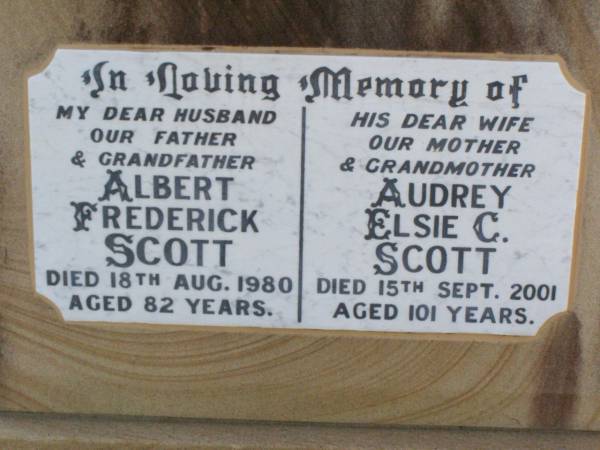 In Loving Memory of
MY DEAR HUSBAND
OUR FATHER
& GRANDFATHER
ALBERT
FREDERICK
SCOTT
DIED 18TH AUG. 1980
AGED 82 YEARS.
HIS DEAR WIFE
OUR MOTHER
& GRANDMOTHER
AUDREY
ELSIE C.
SCOTT
DIED 15TH SEPT. 2001
AGED 101 YEARS.